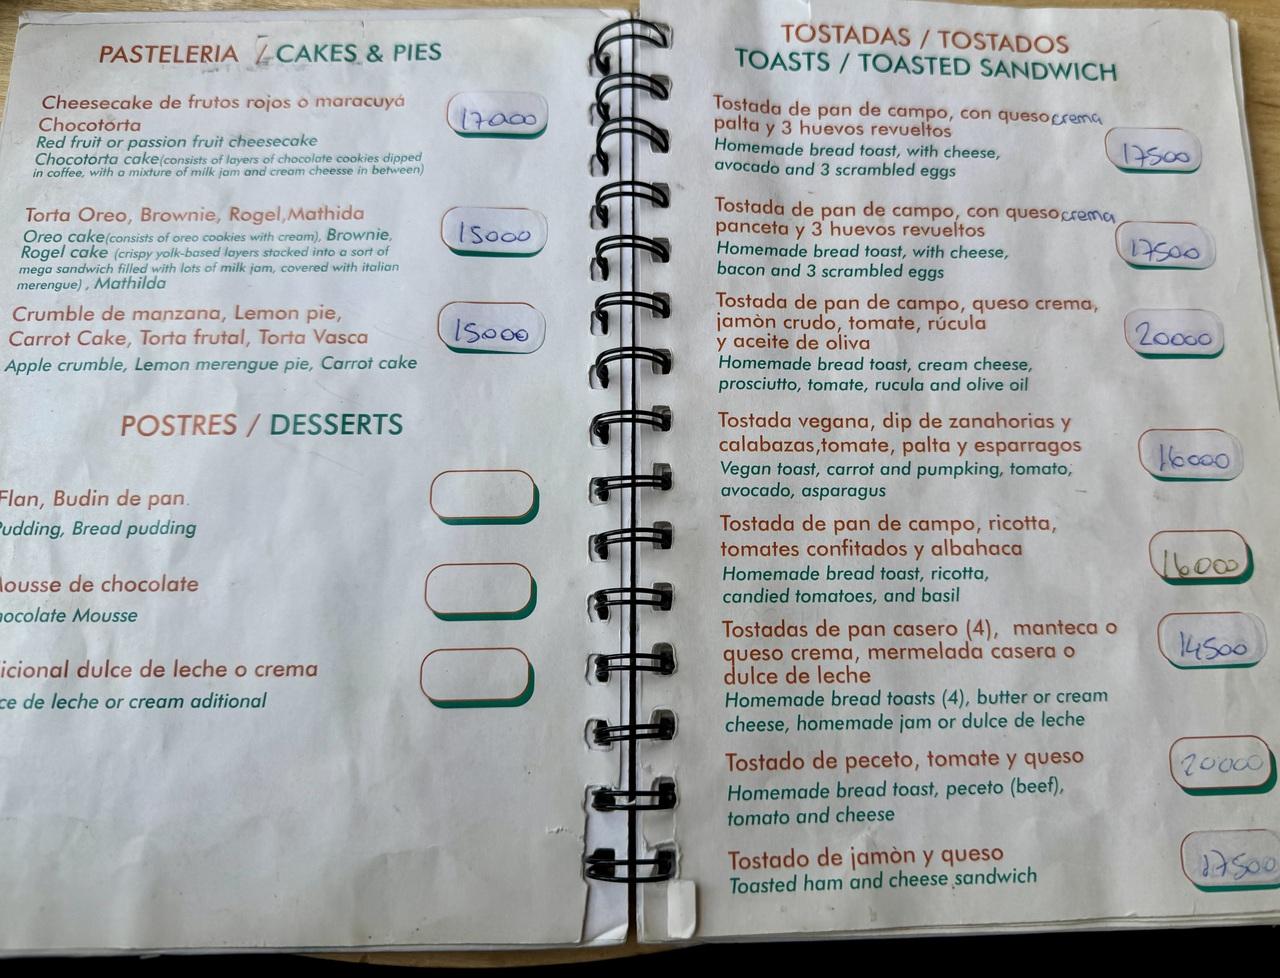 PASTELERIA / CAKES & PIES
Cheesecake de frutos rojos o maracuyá
Chocotorta
17000
Red fruit or passion fruit cheesecake
Chocotorta cake(consists of layers of chocolate cookies dipped
in coffee, with a mixture of milk jam and cream cheesse in between)
Torta Oreo, Brownie, Rogel,Mathida
15000
Oreo cake(consists of oreo cookies with cream), Brownie,
Rogel cake (crispy yolk-based layers stacked into a sort of
mega sandwich filled with lots of milk jam, covered with italian
merengue) , Mathilda
Crumble de manzana, Lemon pie,
Carrot Cake, Torta frutal, Torta Vasca
15000
Apple crumble, Lemon merengue pie, Carrot cake
POSTRES / DESSERTS
Flan, Budin de pan.
Pudding, Bread pudding
ousse de chocolate
ocolate Mousse
icional dulce de leche o crema
ce de leche or cream aditional
TOSTADAS / TOSTADOS
TOASTS / TOASTED SANDWICH
Tostada de pan de campo, con queso crema
palta y 3 huevos revueltos
17500
Homemade bread toast, with cheese,
avocado and 3 scrambled eggs
Tostada de pan de campo, con queso crema
panceta y 3 huevos revueltos
17500
Homemade bread toast, with cheese,
bacon and 3 scrambled eggs
Tostada de pan de campo, queso crema,
jamòn crudo, tomate, rúcula
y aceite de oliva
20000
Homemade bread toast, cream cheese,
prosciutto, tomate, rucula and olive oil
Tostada vegana, dip de zanahorias y
calabazas,tomate, palta y esparragos
16000
Vegan toast, carrot and pumpking, tomato,
avocado, asparagus
Tostada de pan de campo, ricotta,
tomates confitados y albahaca
16000
Homemade bread toast, ricotta,
candied tomatoes, and basil
Tostadas de pan casero (4), manteca o
queso crema, mermelada casera o
dulce de leche
14500
Homemade bread toasts (4), butter or cream
cheese, homemade jam or dulce de leche
Tostado de peceto, tomate y queso
20000
Homemade bread toast, peceto (beef),
tomato and cheese
Tostado de jamòn y queso
17500
Toasted ham and cheese sandwich